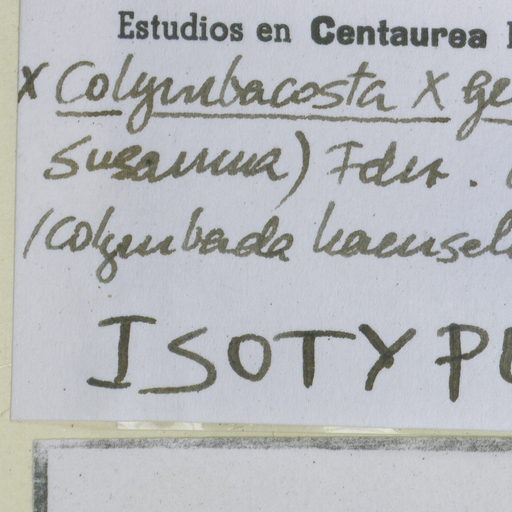 Estudios en Centaurea
X Colymbacosta X ge
Susanna) Fdez.
(Colymbada haensel
ISOTYPU